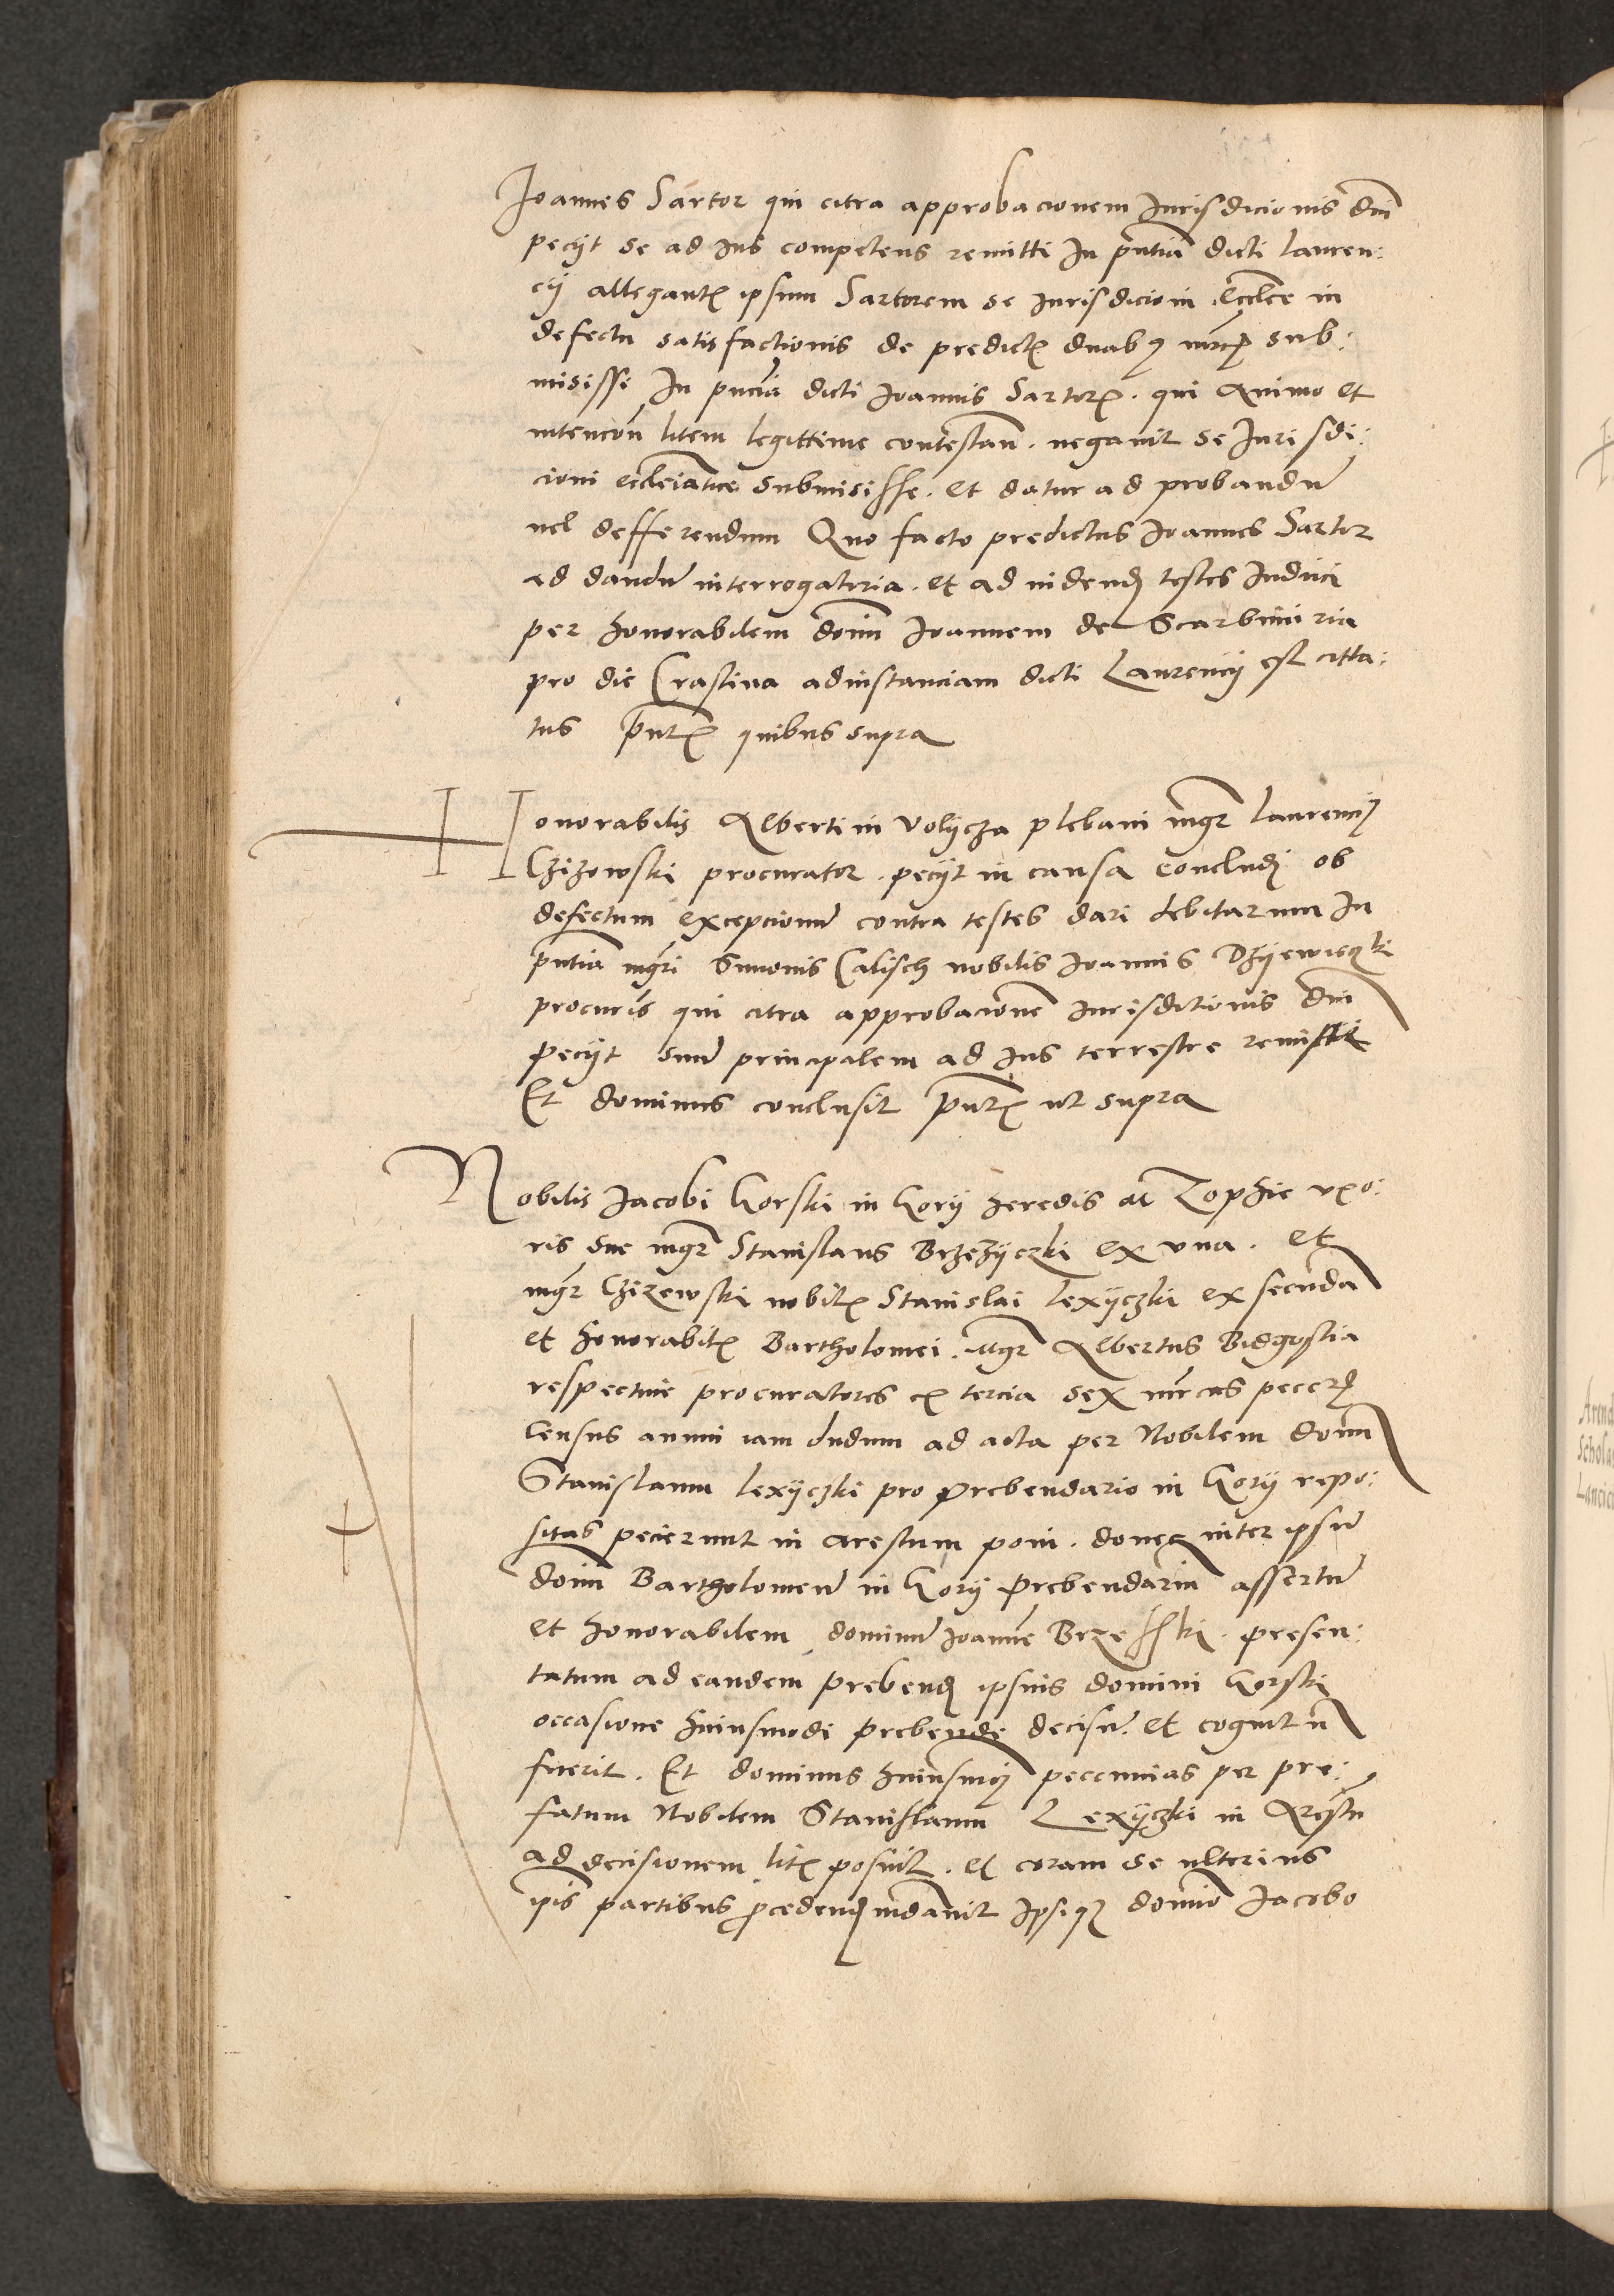 Joannes Sartor qui citra approbacionem Jurisdicionis dni
peciit se ad ius competens remitti In pntia dicti lauren:
cii allegantis ipsum Sartorem se iurisdicioni Ecclce in
defectu satisfactionis de predictis duabus mrcis sub:
misissi In pncia dicti Joannis Sartoris. qui Animo et
intencon litem legittime contestan. negavit se Juri sdi:
cioni eccleiastice submisisse. et datur ad probandu
vel defferendum Quo facto predictus Joannes Sartor
ad dandu interrogatoria. et ad videnda testes induci
per honorabilem donm Joannem de Scarbimiria
pro die Crastina ad instanciam dicti Laurencii est citta:
tus pntibus quibus supra
Honorabilis Alberti in volycza plebani mgr laurencius
Czizowski procurator. peciit in causa concludi ob
defectum excepcionu contra testes dari debitarum In
pntia mgri Simonis Calisch nobilis Joannis
procuris qui citra approbacione iurisdictionis dni
peciit suum principalem ad ius terrestre remitti
Et dominus conclusit pntibus ut supra
Nobilis Jacobi Gorski in Gory heredis ac Zophie uxo:
ris sue mgr Stanislaus Brzezyczki ex una. et
mgr Czizewski nobilis Stanislai Lexyczki ex secunda
et honorabilis Bartholomei. mgr Albertus Bidgostia
respective procuratores ex tercia sex mrcas peccun
Census annui iam dudum ad acta per Nobilem donm
Stanislaum Lexyczki pro prebendario in Gory repo:
sitas pecierunt in arestum poni. donec inter ipsu
donm Bartholomeu in Gory prebendarium assertu
et honorabilem dominu Joanne Brzeski. presen:
tatum ad eandem prebendam ipsius domini Gorski
occasione huiusmodi prebende decisu. et cognitu
fuerit. Et dominus huiusmodi peccunias per pre:
fatum Nobilem Stanislaum Lexyczki in Arestu
ad decisionem litis posuit. et coram se ulterius
ipis partibus procedendum mdavit Ipsique domino Jacobo